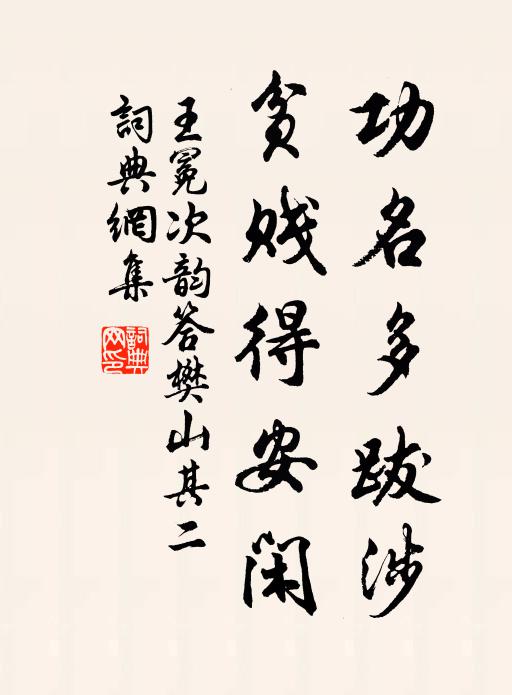 功名多跋涉
貧賤得安閑
王冕次韵答樊山其二
詞典網集
詞典網印